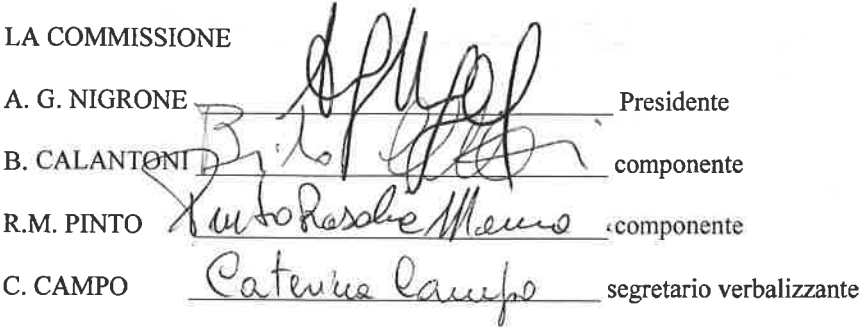 LA COMMISSIONE
A. G. NIGRONE Presidente
B. CALANTONI componente
R.M. PINTO Pinto Rosalie componente
C. CAMPO Caterina Campo segretario verbalizzante